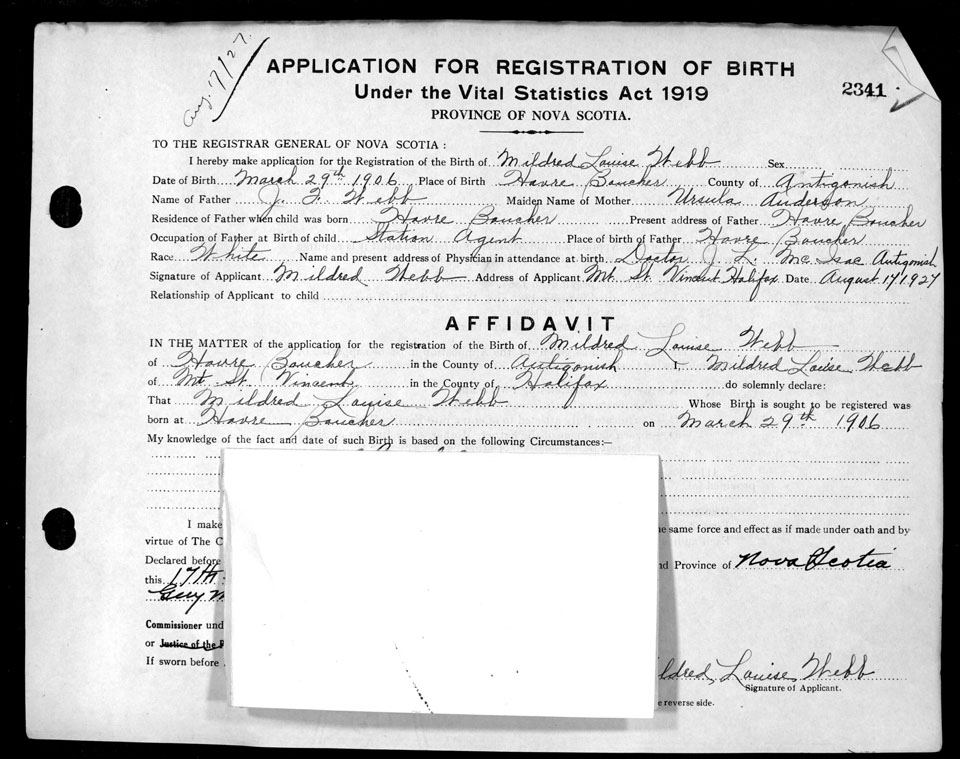 Aug. 17/27.
APPLICATION FOR REGISTRATION OF BIRTH
Under the Vital Statistics Act 1919
2341
PROVINCE OF NOVA SCOTIA.
TO THE REGISTRAR GENERAL OF NOVA SCOTIA :
I hereby make application for the Registration of the Birth of Mildred Louise Webb Sex
Date of Birth March 29th 1906 Place of Birth Havre Boucher County of Antigonish
Name of Father J. F. Webb Maiden Name of Mother Ursula Anderson
Residence of Father when child was born Havre Boucher Present address of Father Havre Boucher
Occupation of Father at Birth of child Station Agent Place of birth of Father Havre Boucher
Race White Name and present address of Physician in attendance at birth Doctor J. L. McIsac Antigonish
Signature of Applicant Mildred Webb Address of Applicant Mt St Vincent Halifax Date August 17 1927
Relationship of Applicant to child
AFFIDAVIT
IN THE MATTER of the application for the registration of the Birth of Mildred Louise Webb
of Havre Boucher in the County of Antigonish I, Mildred Louise Webb
of Mt St. Vincent in the County of Halifax do solemnly declare:
That Mildred Louise Webb Whose Birth is sought to be registered was
born at Havre Boucher on March 29th 1906
My knowledge of the fact and date of such Birth is based on the following Circumstances:—
I make
e same force and effect as if made under oath and by
virtue of The C
Declared before
nd Province of Nova Scotia
this 17th
Commissioner und
or Justice of the P
If sworn before
ldred Louise Webb
Signature of Applicant.
e reverse side.